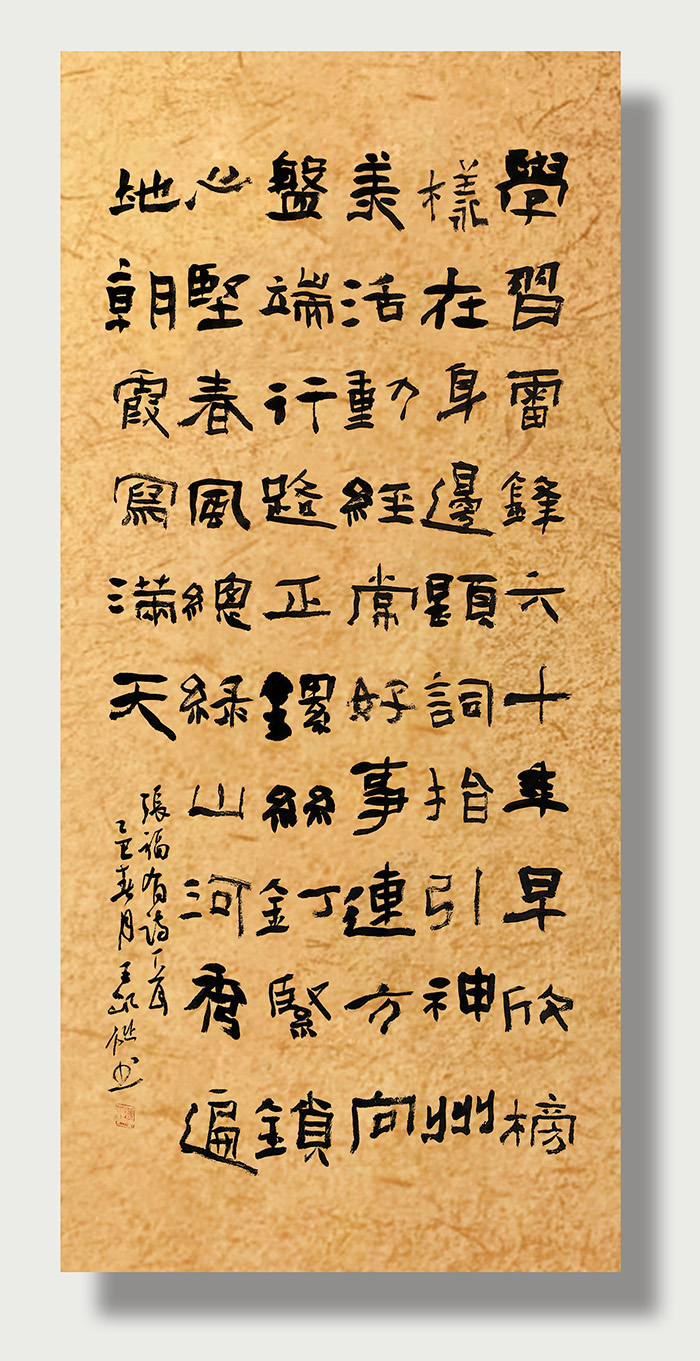 學習雷鋒六十年早欣榜
樣在身邊題詞指引神州
美活動經常好事連方向
盤端行路正鏍絲釘緊鎖
心堅春風總綠山河秀遍
地朝霞寫滿天
張福有詩一首
乙巳春月王書